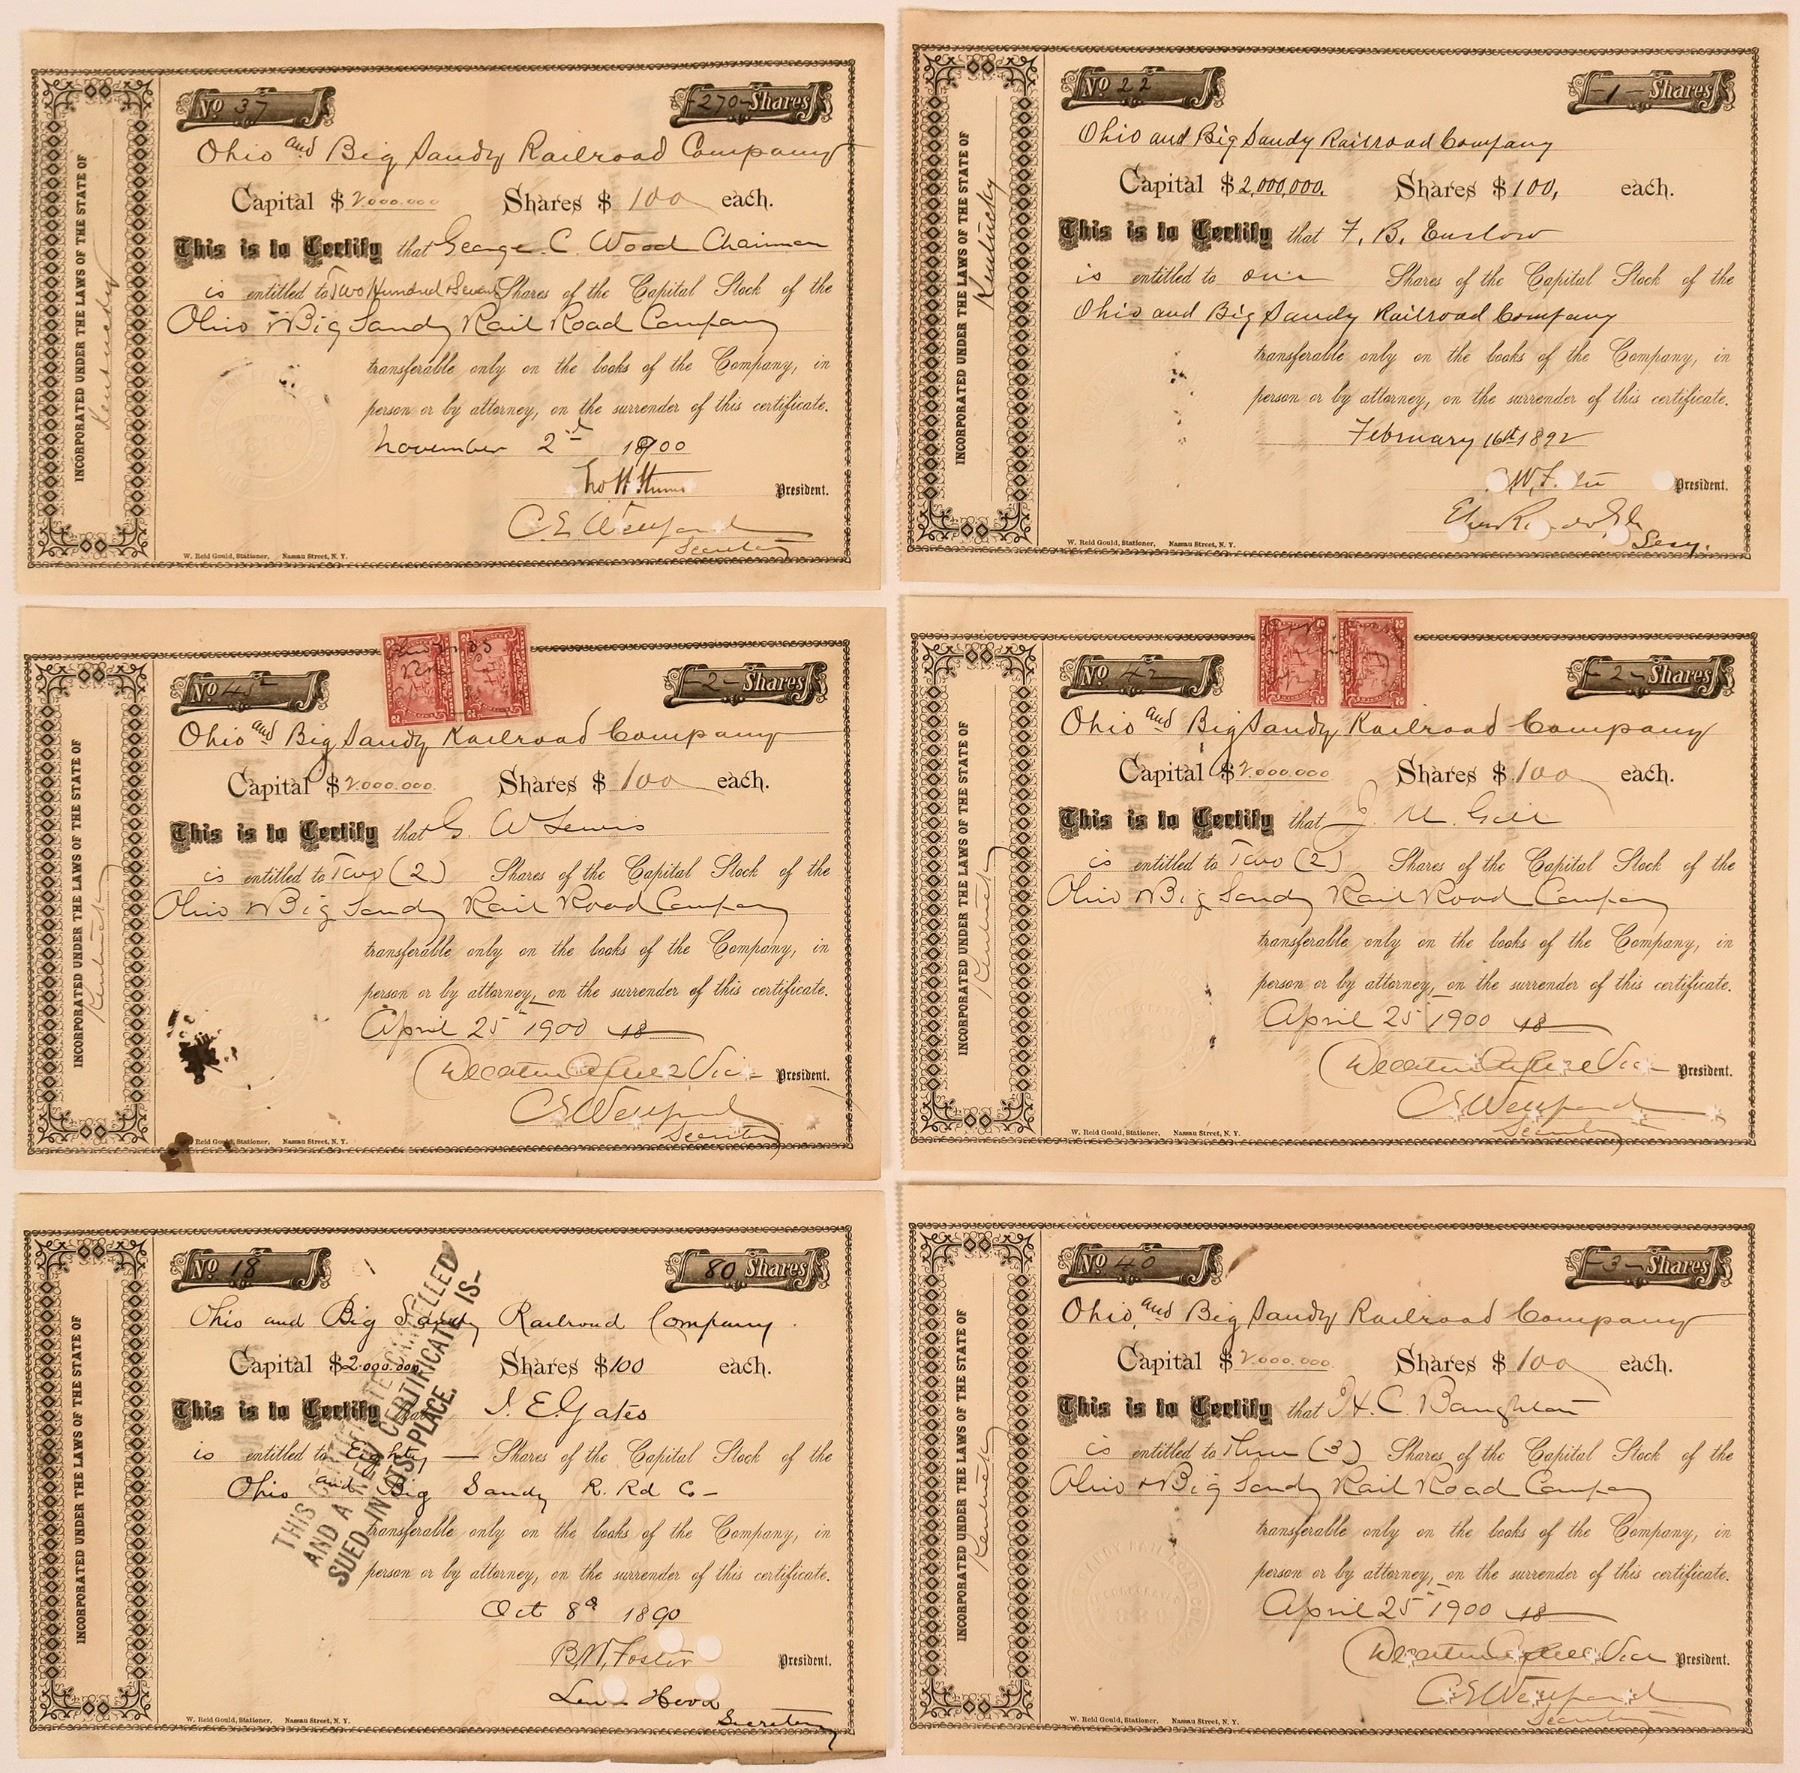 INCORPORATED UNDER THE LAWS OF THE STATE OF
Kentucky
No 37
270 Shares
Ohio and Big Sandy Railroad Company
Capital $ 2.000.000 Shares $ 100 each.
This is to Certify that George C. Wood Chairman
is entitled to Two Hundred & Seventy Shares of the Capital Stock of the
Ohio & Big Sandy Rail Road Company
transferable only on the books of the Company, in
person or by attorney, on the surrender of this certificate.
November 2nd 1900
President.
C. E. Wellford
Secretary
W. Reid Gould, Stationer, Nassau Street, N. Y.
INCORPORATED UNDER THE LAWS OF THE STATE OF
Kentucky
No 22
-1- Shares
Ohio and Big Sandy Railroad Company
Capital $ 2,000,000. Shares $ 100, each.
This is to Certify that F. B. Enslow
is entitled to one Shares of the Capital Stock of the
Ohio and Big Sandy Railroad Company
transferable only on the books of the Company, in
person or by attorney, on the surrender of this certificate.
February 16th 1892
President.
Secy.
W. Reid Gould, Stationer, Nassau Street, N. Y.
INCORPORATED UNDER THE LAWS OF THE STATE OF
Kentucky
No 45
-2- Shares
Ohio and Big Sandy Railroad Company
Capital $ 2.000.000. Shares $ 100 each.
This is to Certify that G. W Lewis
is entitled to Two (2) Shares of the Capital Stock of the
Ohio & Big Sandy Rail Road Company
transferable only on the books of the Company, in
person or by attorney, on the surrender of this certificate.
April 25 1900 18
Decatur Axtell Vice President.
C E Wellford
Secretary
Reid Gould, Stationer, Nassau Street, N. Y.
INCORPORATED UNDER THE LAWS OF THE STATE OF
Kentucky
No 42
-2- Shares
Ohio and Big Sandy Railroad Company
Capital $ 2.000.000 Shares $ 100 each.
This is to Certify that J. M. Gill
is entitled to Two (2) Shares of the Capital Stock of the
Ohio & Big Sandy Rail Road Company
transferable only on the books of the Company, in
person or by attorney, on the surrender of this certificate.
April 25 1900 18
Decatur Axtell Vice President.
C E Wellford
Secretary
W. Reid Gould, Stationer, Nassau Street, N. Y.
INCORPORATED UNDER THE LAWS OF THE STATE OF
No 18
80 Shares
Ohio and Big Sandy Railroad Company.
Capital $2.000.000 Shares $100 each.
This is to Certify that I. E. Gates
is entitled to Eighty Shares of the Capital Stock of the
Ohio and Big Sandy R. Rd Co-
transferable only on the books of the Company, in
person or by attorney, on the surrender of this certificate.
Oct 8th 1890
B. W. Foster President.
Lewis Hood
Secretary
W. Reid Gould, Stationer, Nassau Street, N. Y.
THIS CERTIFICATE CANCELLED
AND A NEW CERTIFICATE IS-
SUED IN ITS PLACE.
INCORPORATED UNDER THE LAWS OF THE STATE OF
Kentucky
No 40
-3- Shares
Ohio and Big Sandy Railroad Company
Capital $ 2.000.000. Shares $ 100 each.
This is to Certify that H. C. Baughman
is entitled to Three (3) Shares of the Capital Stock of the
Ohio & Big Sandy Rail Road Company
transferable only on the books of the Company, in
person or by attorney, on the surrender of this certificate.
April 25 1900 18
Decatur Axtell Vice President.
C E Wellford
Secretary
W. Reid Gould, Stationer, Nassau Street, N. Y.